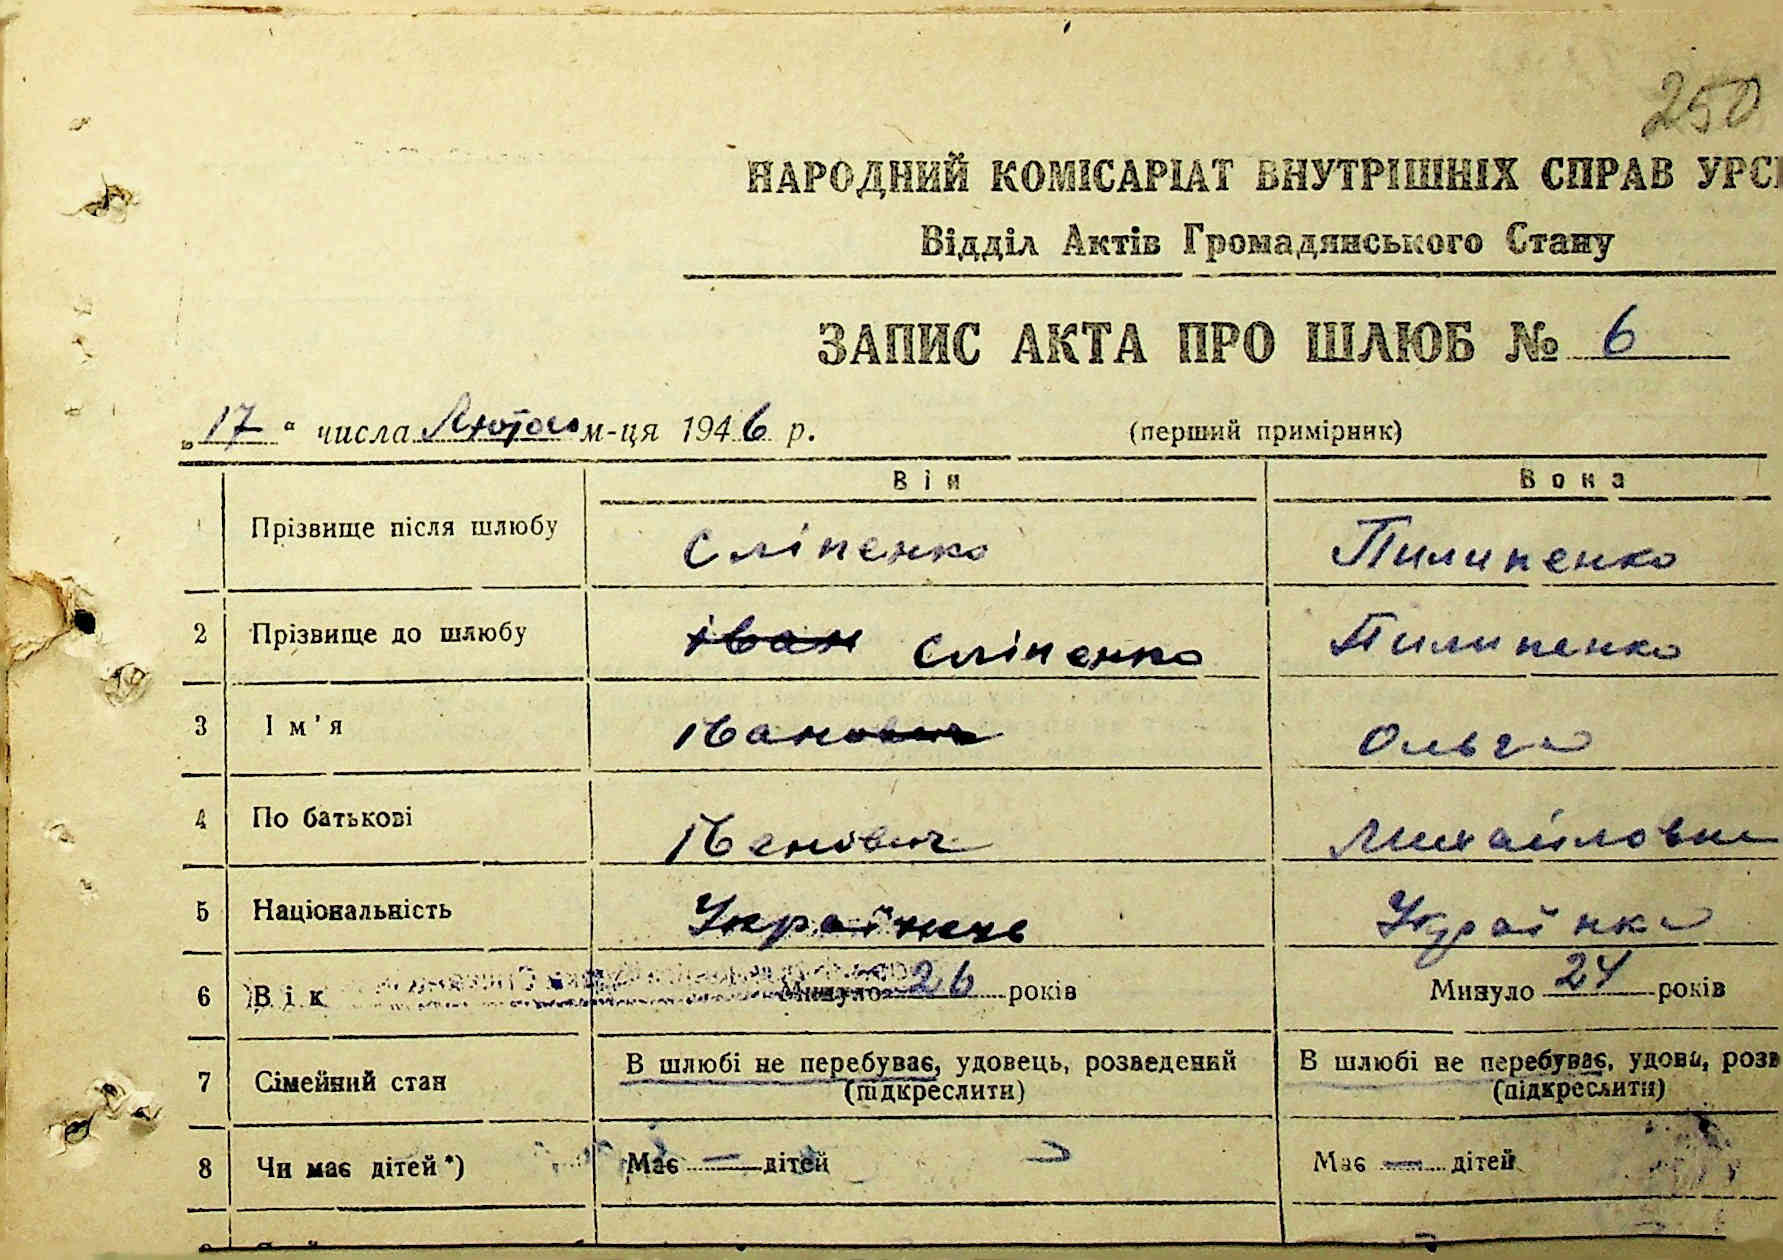 250
НАРОДНИЙ КОМІСАРІАТ ВНУТРІШНІХ СПРАВ УРСР
Відділ Актів Громадянського Стану
ЗАПИС АКТА ПРО ШЛЮБ № 6
„17“ числа Лютого м-ця 1946 р. (перший примірник)
Він Вона
Прізвище після шлюбу Сліпенко Пилипенко
2 Прізвище до шлюбу Іван Сліпенко Пилипенко
3 Ім'я Іванович Ольга
4 По батькові Іванович Михайловна
5 Національність Українець Українка
6 Вік Минуло 26 років Минуло 24 років
7 Сімейний стан В шлюбі не перебуває, удовець, розведений В шлюбі не перебуває, удова, розв
(підкреслити) (підкреслити)
8 Чи має дітей*) Має — дітей Має — дітей